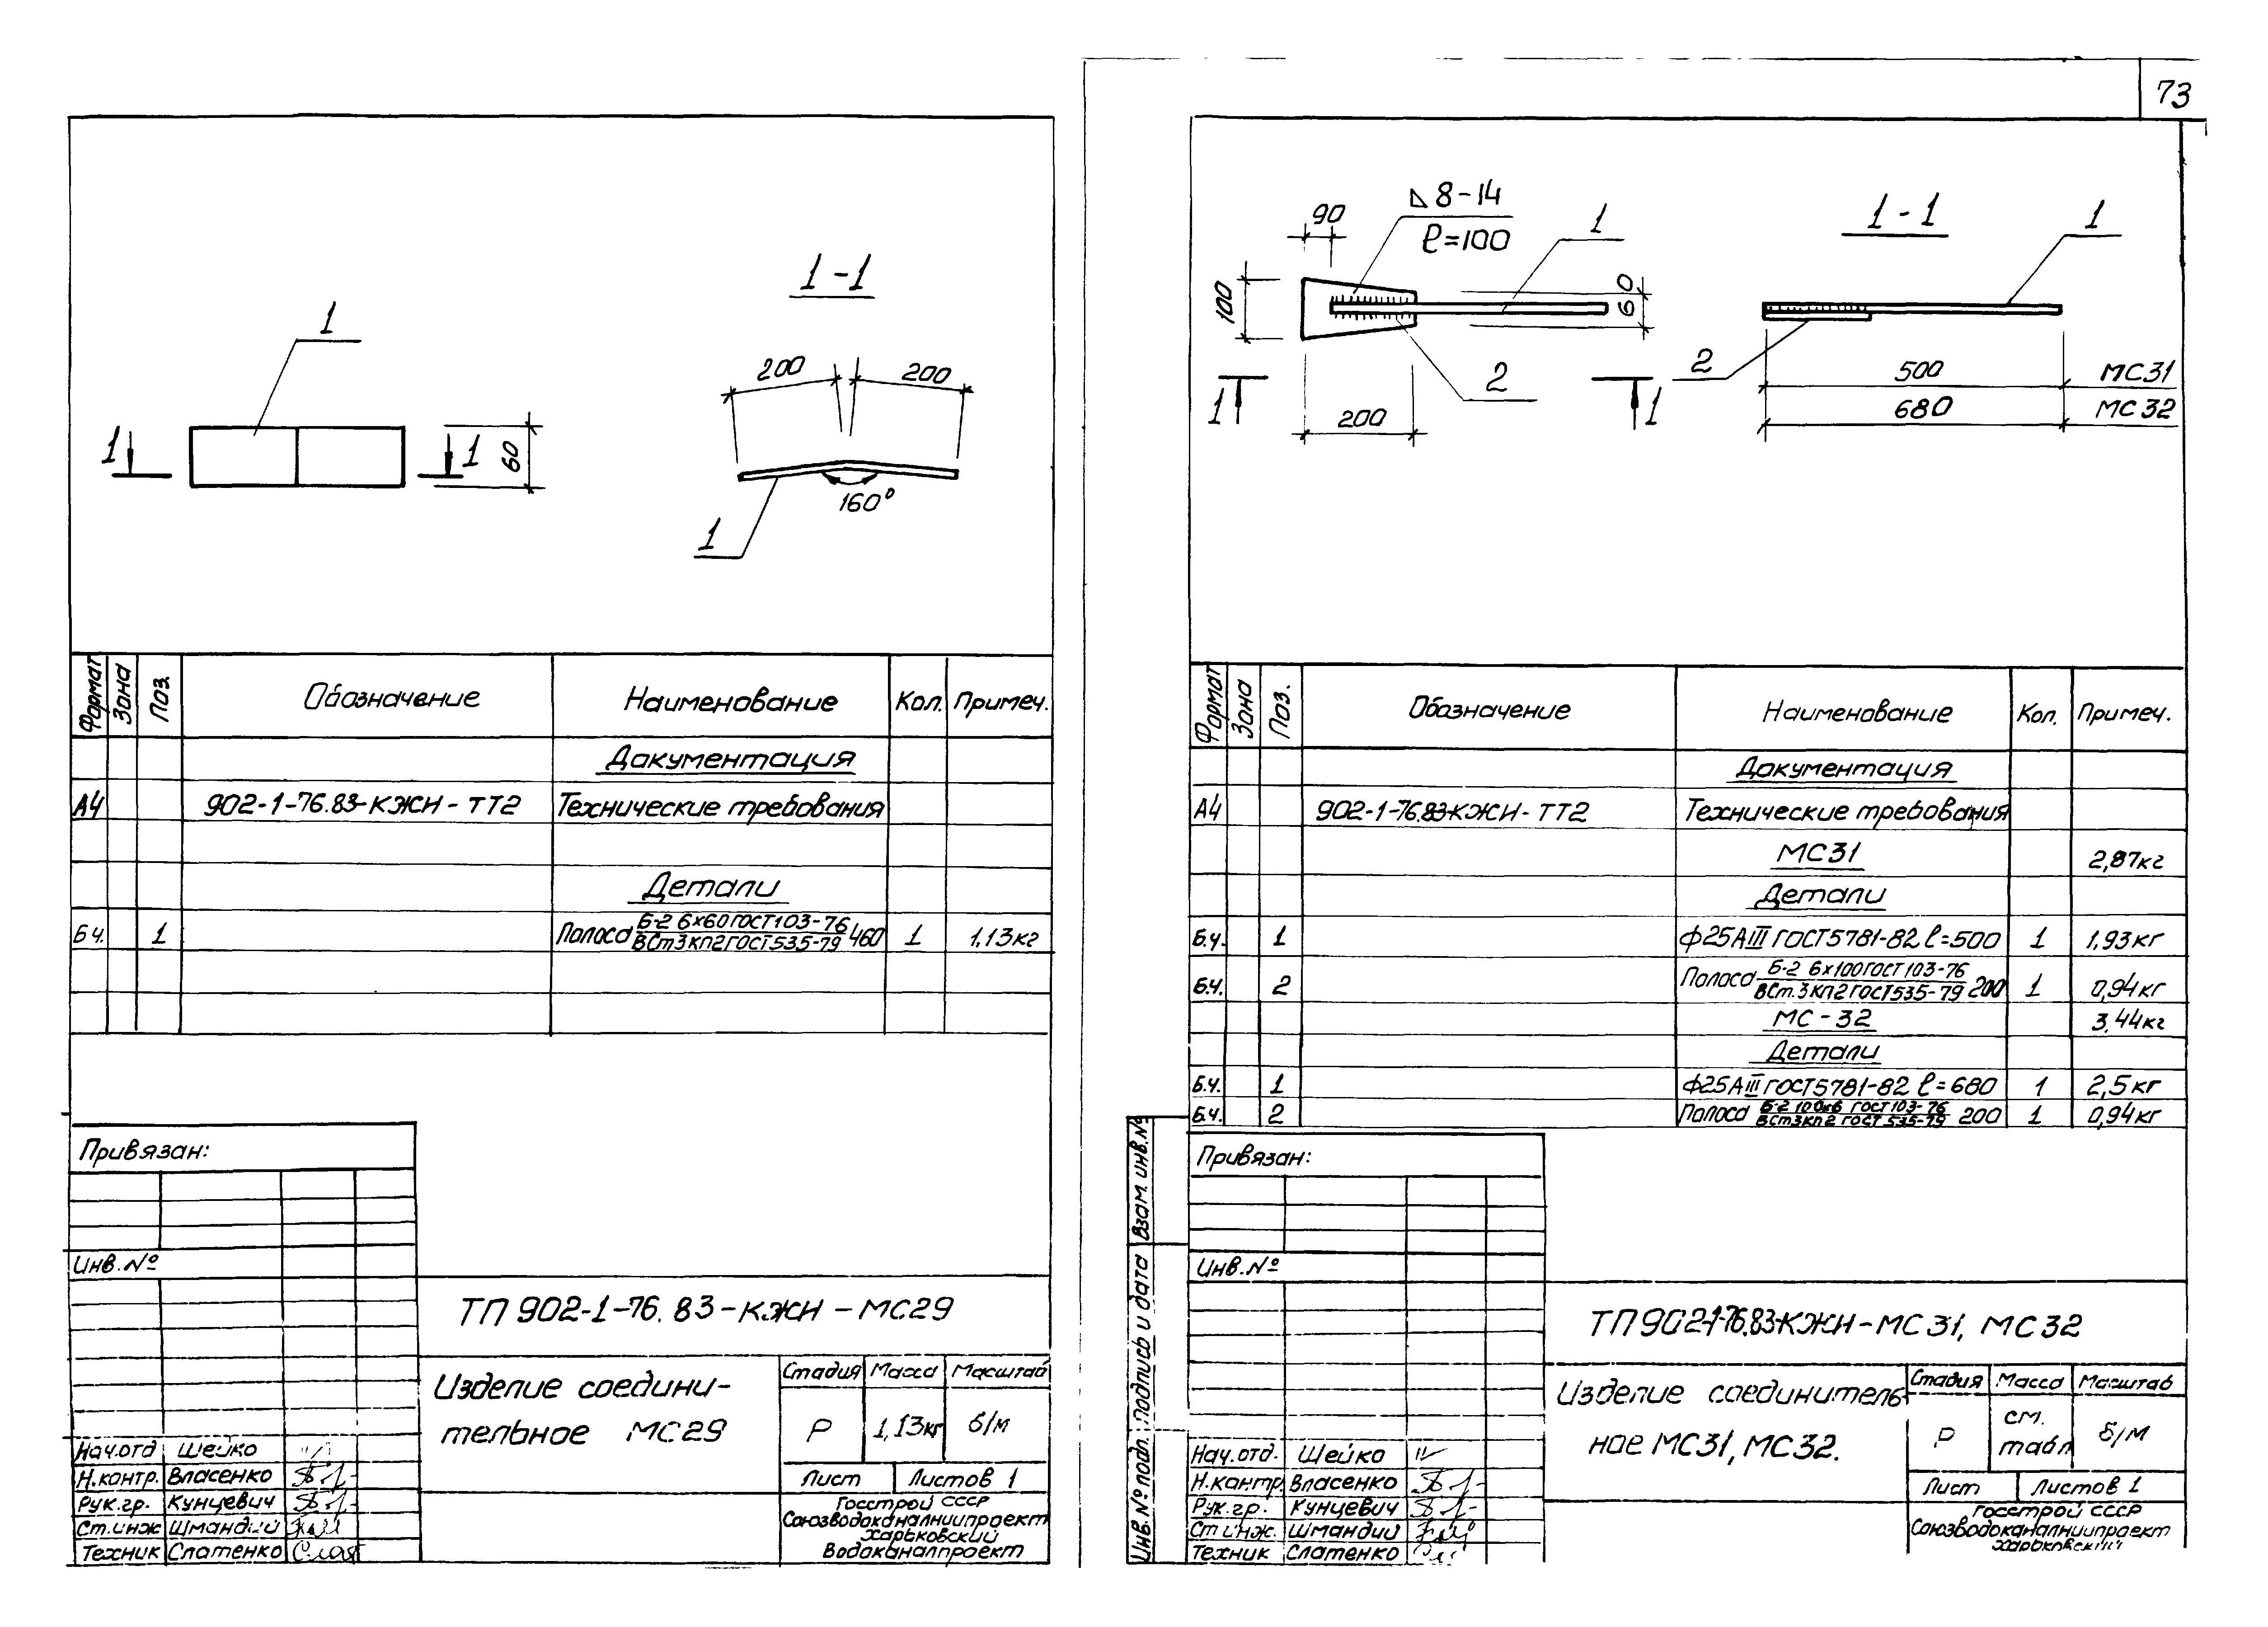 73
1
1-1
200
200
1
1
60
160°
1
Формат
Зона
Поз.
Обозначение
Наименование
Кол.
Примеч.
Документация
А4
902-1-76.83-КЖИ-ТТ2
Технические требования
Детали
Б.ч.
1
Полоса Б-2 6х60 ГОСТ103-76 / ВСт3КП2 ГОСТ535-79 460
1
1,13кг
Привязан:
Инв.№
ТП 902-1-76.83-КЖИ-МС29
Изделие соедини-
тельное МС29
Стадия Масса Масштаб
Р 1,13кг б/м
Лист Листов 1
Госстрой СССР
Союзводоканалниипроект
Харьковский
Водоканалпроект
Нач.отд Шейко
Н.контр. Власенко
Рук.гр. Кунцевич
Ст.инж Шмандий
Техник Слатенко
90
⊿8-14
ℓ=100
1
100
60
2
200
1
1
1-1
1
2
500 МС31
680 МС32
Формат
Зона
Поз.
Обозначение
Наименование
Кол.
Примеч.
Документация
А4
902-1-76.83-КЖИ-ТТ2
Технические требования
МС31
2,87кг
Детали
Б.ч.
1
Ф25АIII ГОСТ5781-82 ℓ=500
1
1,93кг
Б.ч.
2
Полоса Б-2 6х100 ГОСТ103-76 / ВСт.3КП2 ГОСТ535-79 200
1
0,94кг
МС-32
3,44кг
Детали
Б.ч.
1
Ф25АIII ГОСТ5781-82 ℓ=680
1
2,5кг
Б.ч.
2
Полоса Б-2 100х6 ГОСТ103-76 / ВСт3КП2 ГОСТ535-79 200
1
0,94кг
Взам. инв.№
Подпись и дата
Инв.№ подл.
Привязан:
Инв.№
ТП 902-1-76.83-КЖИ-МС31, МС32
Изделие соединитель-
ное МС31, МС32.
Стадия Масса Масштаб
Р см. табл б/м
Лист Листов 1
Госстрой СССР
Союзводоканалниипроект
Харьковский
Нач.отд. Шейко
Н.контр. Власенко
Рук.гр. Кунцевич
Ст инж. Шмандий
Техник Слатенко